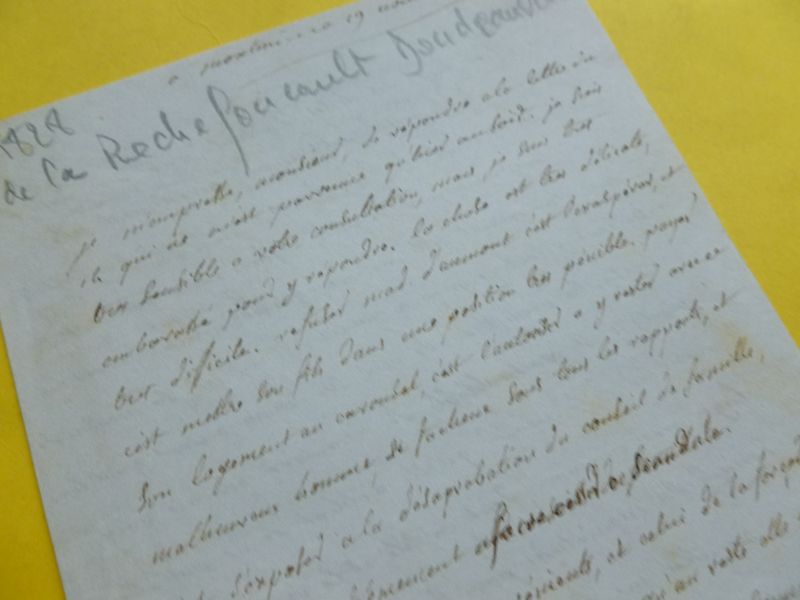 a montmirail 19
1828
de La Rochefoucault Doudeauville
je m'empresse, monsieur, de répondre a la lettre du
16 qui ne m'est parvenue qu'hier au soir. je suis
tres sensible a votre consultation, mais je suis tres
embarassé pour y répondre. la chose est tres délicate,
tres difficile. refuser mad. d'aumont c'est l'exaspérer, et
c'est mettre son fils dans une position tres pénible. payer
son logement au carousel, c'est l'autoriser a y rester avec ce
malheureux homme, si facheux sous tous les rapports, et
s'exposer a la désaprobation du conseil de famille,
accroissement de scandale.
et celui de la
qu'au reste elle